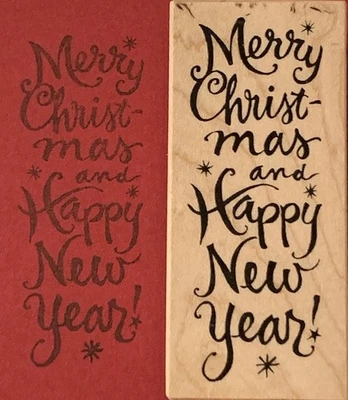 Merry
Christ-
mas
and
Happy
New
Year!
Merry
Christ-
mas
and
Happy
New
Year!